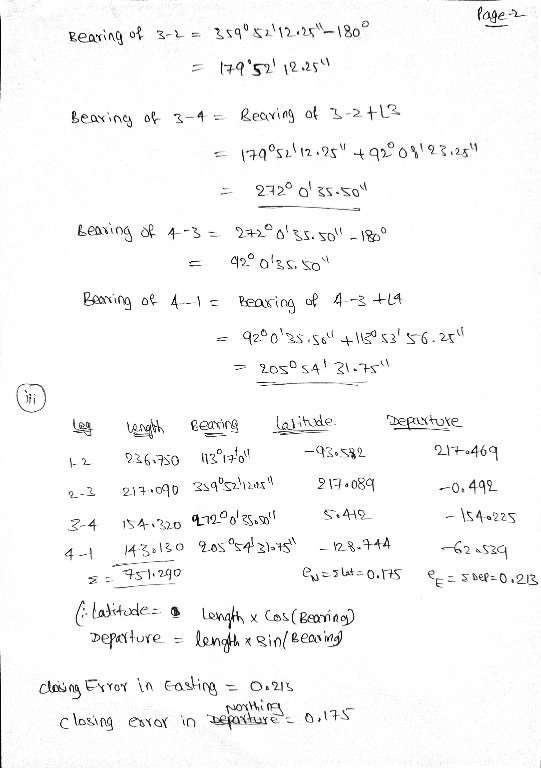 Page-2
Bearing of 3-2 = 359°52'12.25"-180°
= 179°52' 12.25"
Bearing of 3-4 = Bearing of 3-2+L3
= 179°52'12.25" + 92°08'23.25"
= 272°0'35.50"
Bearing of 4-3 = 272°0'35.50" - 180°
= 92°0'35.50"
Bearing of 4-1 = Bearing of 4-3 + L4
= 92°0'35.50" + 113°53'56.25"
= 205°54'31.75"
iii
Leg Length Bearing Latitude Departure
1-2 236.750 113°17'0" -93.582 217.469
2-3 217.090 359°52'12.25" 217.089 -0.492
3-4 154.320 272°0'35.50" 5.412 -154.225
4-1 143.130 205°54'31.75" -128.744 -62.539
Σ = 751.290 eN = ΣLat = 0.175 eE = ΣDep = 0.213
(∵ Latitude = Length x Cos(Bearing)
Departure = length x Sin(Bearing)
Closing Error in Easting = 0.213
Closing error in Northing = 0.175